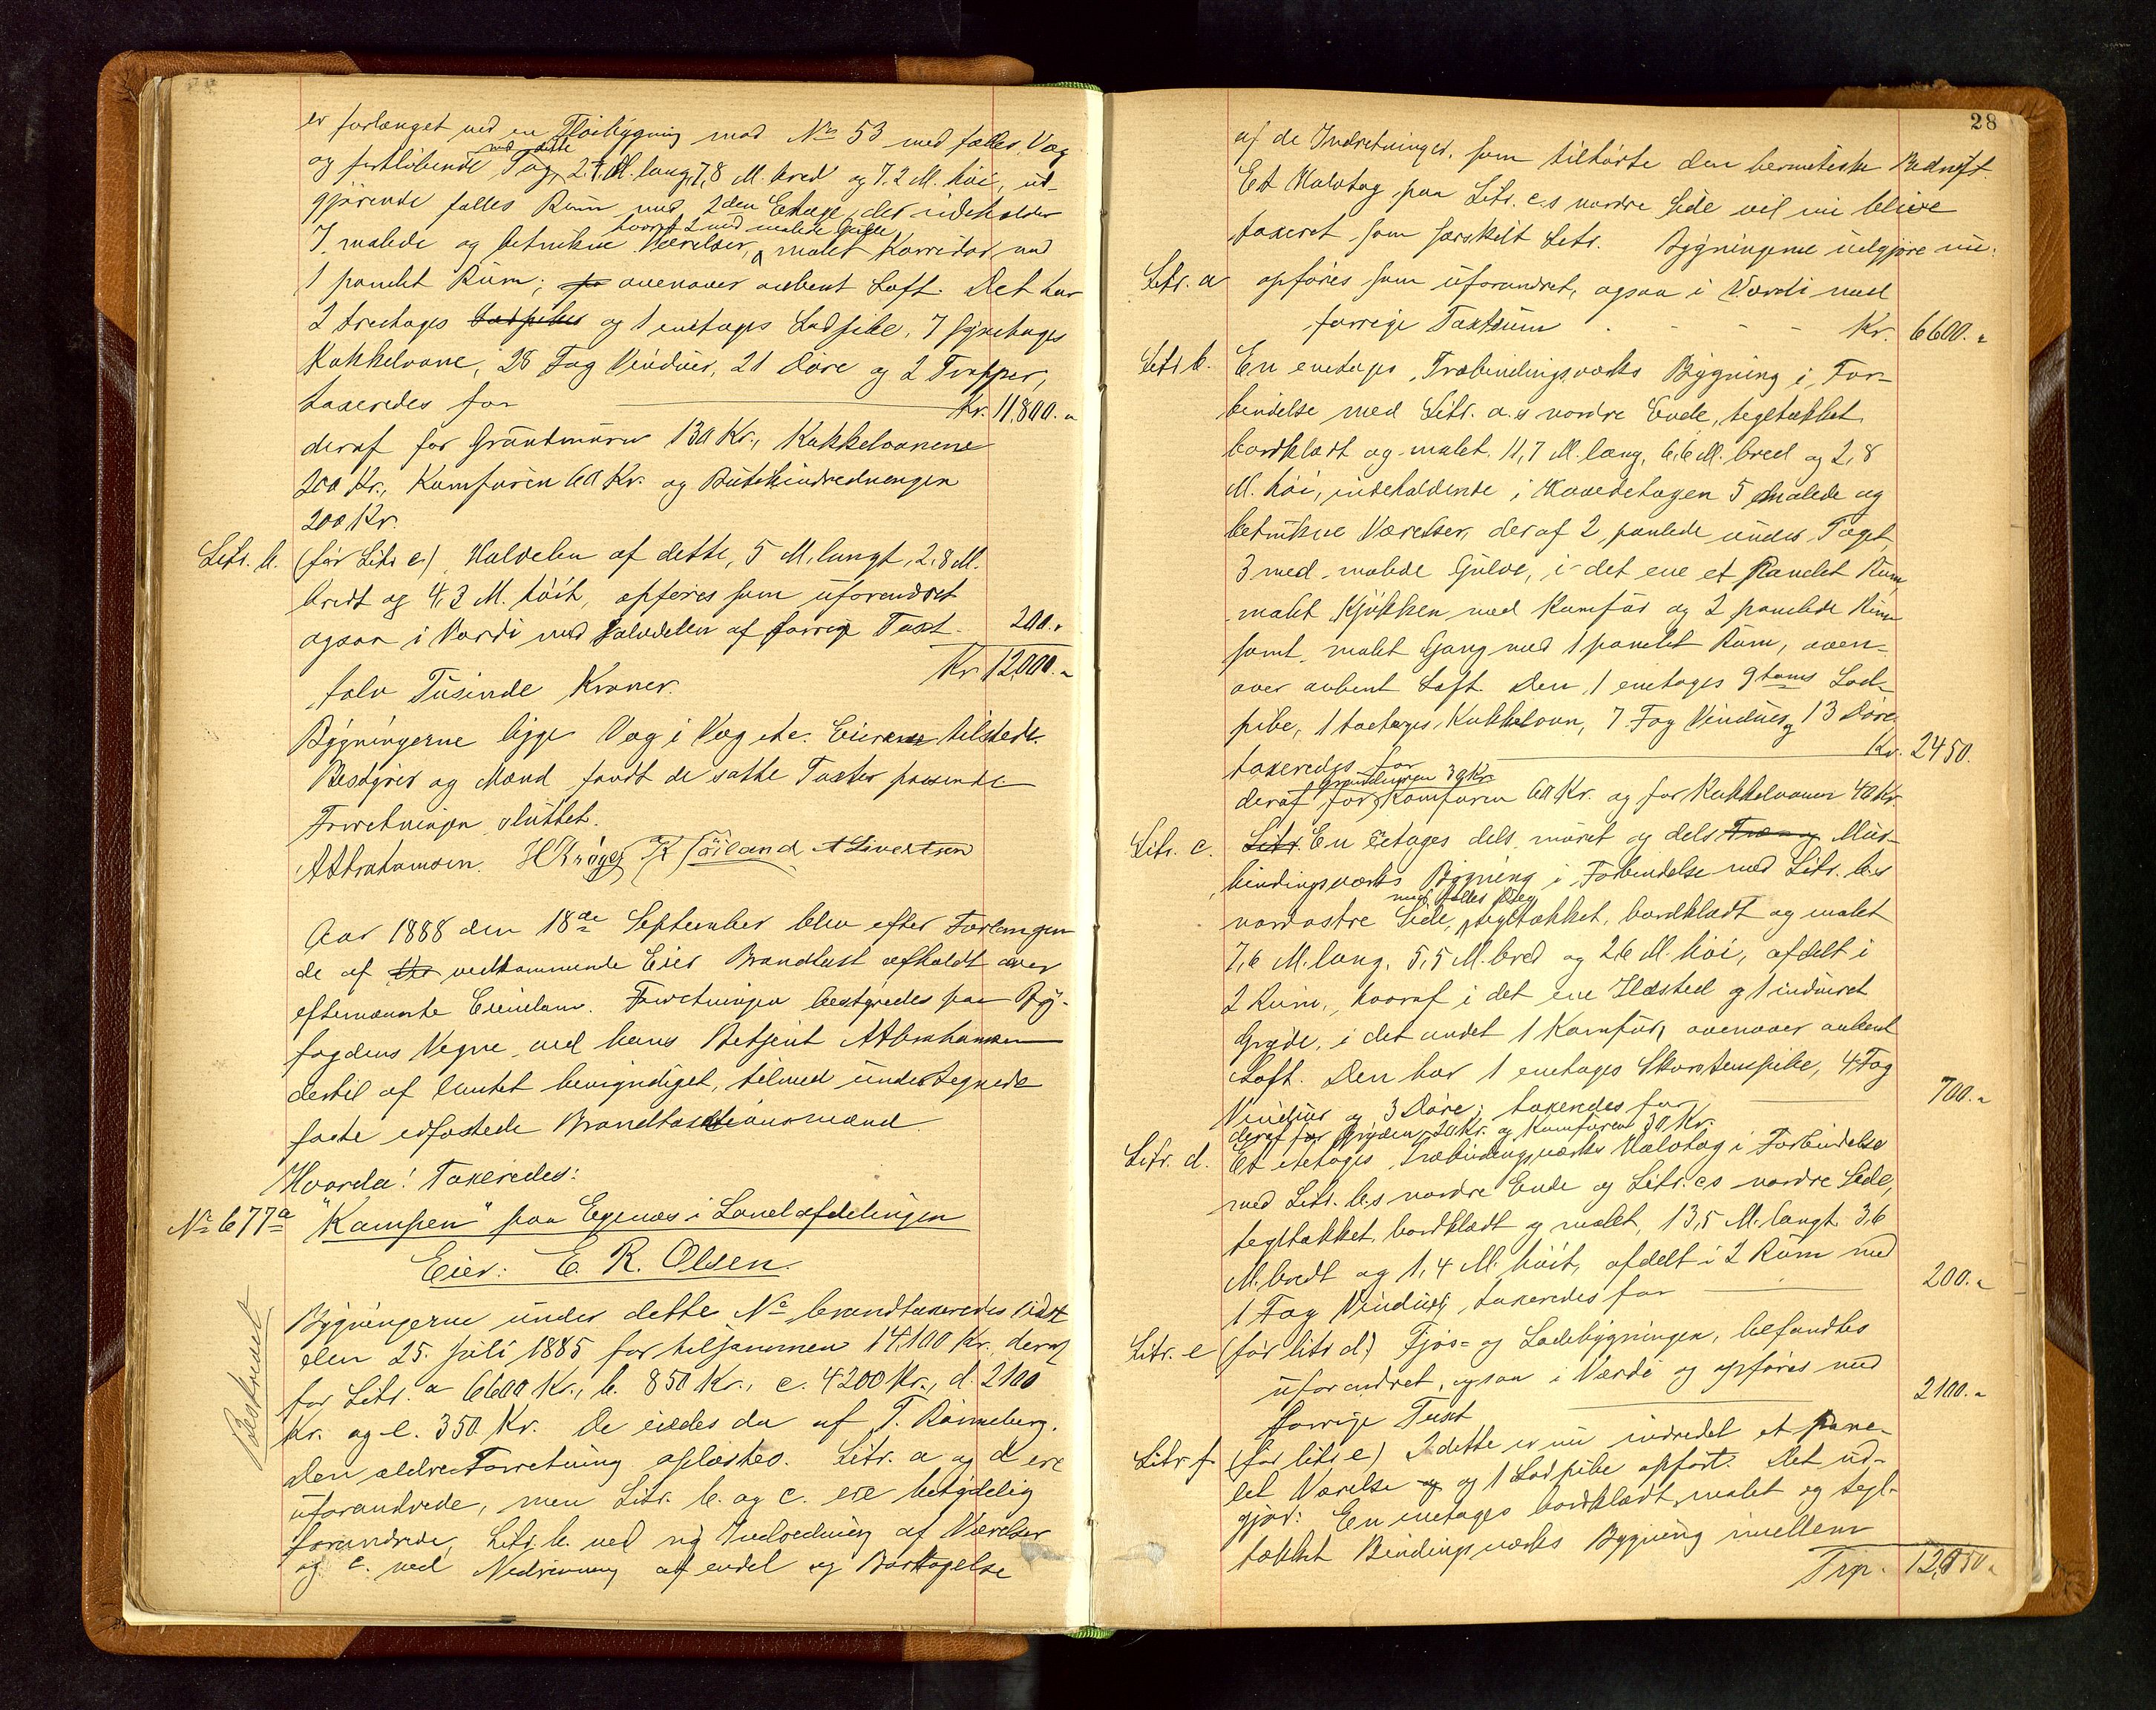 er forlænget ved en Fløibygning mod No 53 med fælles Væg
og fortløbende Tag, 2,4 M. lang, 7,8 M. bred og 7,2 M. høi, ud-
gjørende fælles Rum med 2den Etage, der indeholder
7 malede og betrukne Værelser, hvoraf 2 med malede Gulve, malet Korridor med
1 panelt Rum; ovenover aabent Loft. Det har
2 treetages Ladpiber og 1 enetages Ladpibe, 7 fyretages
Kakkelovne, 28 Fag Vinduer, 21 Døre og 2 Trapper,
taxeredes for Kr. 11,800.„
deraf for Grundmuren 130 Kr., Kakkelovnene
200 Kr., Komfuren 60 Kr. og Butikindredningen
200 Kr.
Litr. b. (før Litr c) Halvdelen af dette, 5 M. langt, 2,8 M.
bredt og 4,3 M. høit, opføres som uforandret
ogsaa i Værdi med halvdelen af forrige Taxt. 200.„
Kr. 12000.„
tolv Tusinde Kroner.
Bygningerne ligge Væg i Væg etc. Eieren tilstede.
Bestyrer og Mænd fandt de satte Taxter passende
Forretningen sluttet.
A Abrahamsen. H Krøger K Høiland A Sivertsen
Aar 1888 den 18de September blev efter Forlangen-
de af vedkommende Eier Brandtaxt afholdt over
efternævnte Eiendom. Forretningen bestyredes paa By-
fogdens Vegne ved hans Betjent A Abrahamsen
dertil af Amtet bemyndiget, tilmed undertegnede
faste edfæstede Brandtaxtionsmænd
Hvorda! Taxeredes:
No 677a "Kampen" paa Egenæs i Landafdelingen
Eier: E. R. Olsen.
Beskrevet
Bygningerne under dette No brandtaxeredes sidst
den 25. juli 1885 for tilsammen 14,100 Kr. deraf
for Litr. a 6600 Kr., b. 850 Kr., c. 4200 Kr., d. 2100
Kr. og e. 350 Kr. De eiedes da af T. Rønneberg.
Den ældre Forretning oplæstes. Litr. a og d ere
uforandrede, men Litr. b. og c. ere betydelig
forandrede, Litr. b. ved ny Indredning af Værelser
og c. ved Nedrivning af endel og Borttagelse
28
af de Indretninger, som tilhørte den hermetiske Bedrift.
Et Halvtag paa Litr. c.s nordre Side vil nu blive
taxeret som særskilt Litr. Bygningerne udgjøre nu:
Litr. a opføres som uforandret, ogsaa i Værdi med
forrige Taxtsum Kr. 6600.„
Litr. b. En enetages Træbindingsværks Bygning i For-
bindelse med Litr. a.s nordre Ende, tegltækket,
bordklædt og malet, 11,7 M. lang, 6,6 M. bred og 2,8
M. høi, indeholdende i Hovedetagen 5 malede og
betrukne Værelser, deraf 2 panlede under Taget,
3 med malede Gulve, i det ene et Panelet Rum,
malet Kjøkken med Komfur og 2 panlede Rum
samt malet Gang med 1 panelet Rum, oven-
over aabent Loft. Den 1 enetages 9toms Lad-
pibe, 1 toetages Kakkelovn, 7 Fag Vinduer og 13 Døre
taxeredes for Kr. 2450.
deraf for Grundmuren 30 Kr. Komfuren 60 Kr. og for Kakkelovnen 40 Kr.
Litr. c. Litr. En eetages dels muret og dels Træ og Mur-
bindingsværks Bygning i Forbindelse med Litr. b.s
nordøstre Side, med fælles Væg tegltækket, bordklædt og malet
7,6 M. lang, 5,5 M. bred og 2,6 M. høi, afdelt i
2 Rum, hvoraf i det ene Ildsted og 1 indmuret
Gryde, i det andet 1 Komfur, ovenover aabent
Loft. Den har 1 enetages Skorstenspibe, 4 Fag
Vinduer og 3 Døre; taxeredes for 700.„
deraf for Gryden 20 Kr. og Komfuren 30 Kr.
Litr. d. Et etetages Træbindingsværks Halvtag i Forbindelse
med Litr. b.s nordre Ende og Litr. c.s nordre Side,
tegltækket, bordklædt og malet, 13,5 M. langt 3,6
M. bredt og 1,4 M. høit, afdelt i 2 Rum med
1 Fag Vinduer, taxeredes for 200.„
Litr. e (før litr d.) Fjøs- og Ladebygningen, befandtes
uforandret, ogsaa i Værdi og opføres med
forrige Taxt 2100.„
Litr. f. (før litr e) I dette er nu indredet et pane-
let Værelse og 1 Ladpibe opført. Det ud-
gjør: En enetages bordklædt, malet og tegl-
tækket Bindingsværks Bygning imellem
Trp. 12,050.„